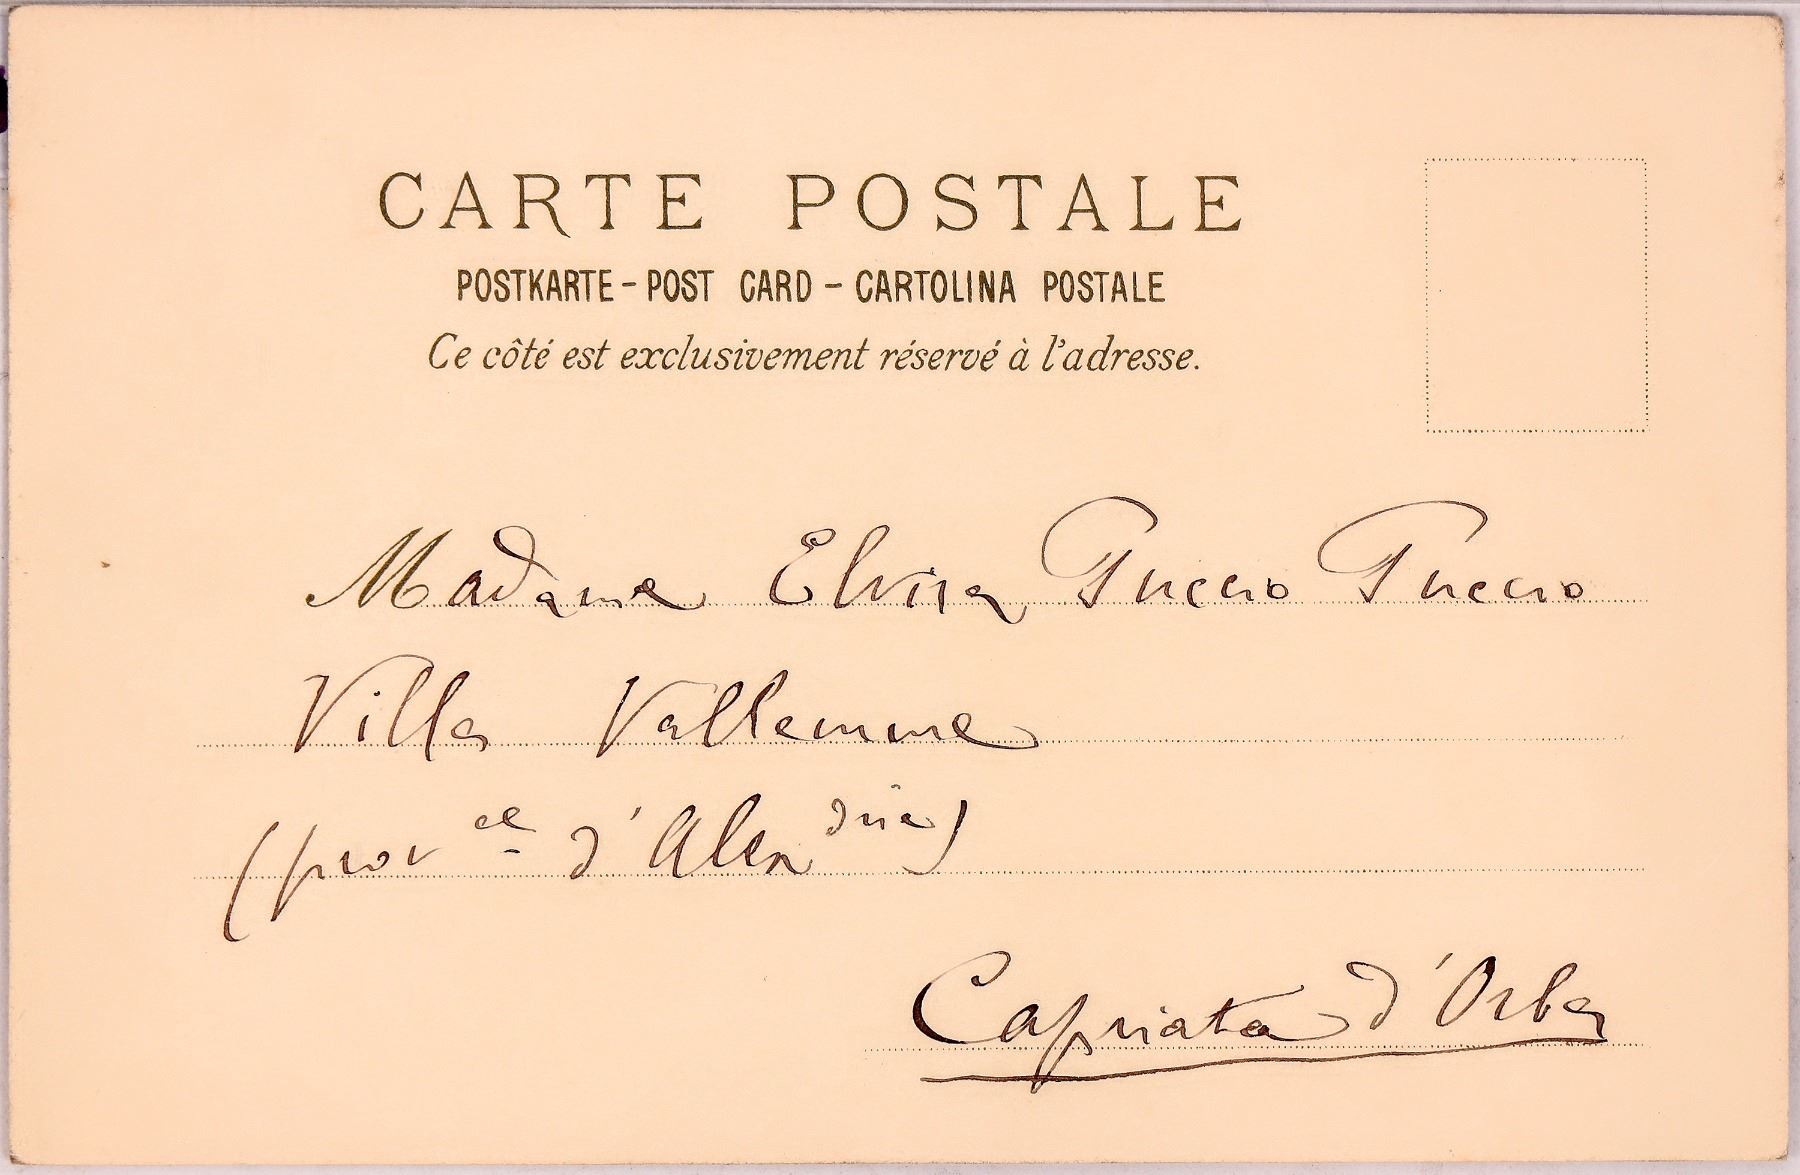 CARTE POSTALE
POSTKARTE - POST CARD - CARTOLINA POSTALE
Ce côté est exclusivement réservé à l'adresse.
Madame Elvira Puccio Puccio
Villa Vallemme
(prov ce d'Alex drie)
Capriata d'Orba